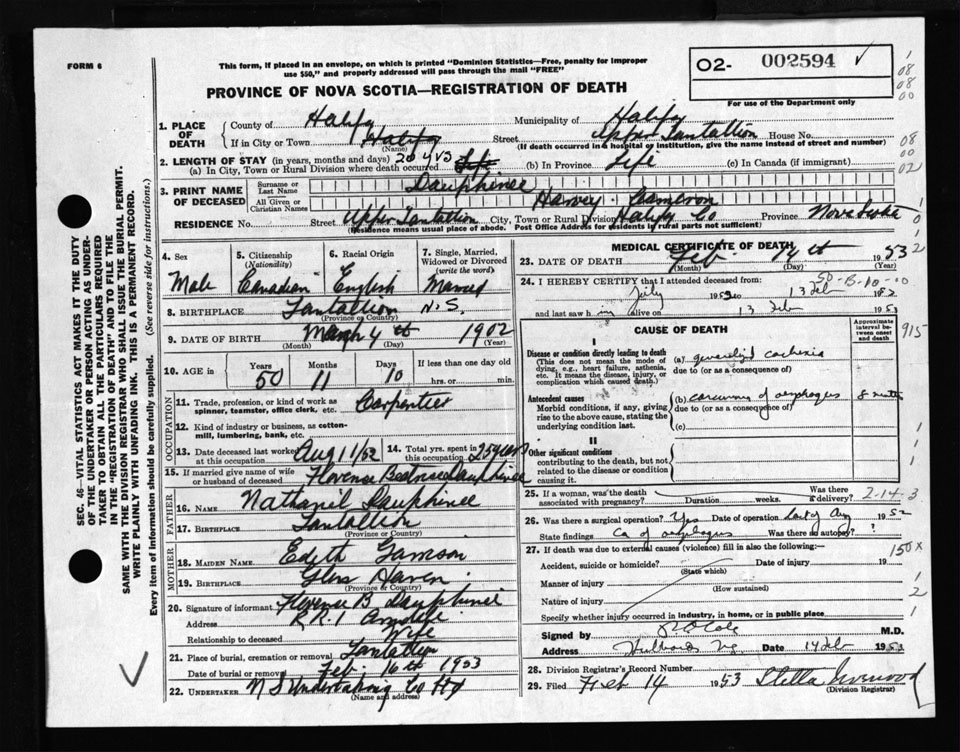 FORM 6
This form, if placed in an envelope, on which is printed "Dominion Statistics—Free, penalty for improper
use $50," and properly addressed will pass through the mail "FREE"
O2- 002594 ✓
For use of the Department only
PROVINCE OF NOVA SCOTIA—REGISTRATION OF DEATH
1. PLACE OF DEATH
County of Halifx Municipality of Halifx
If in City or Town Halifax (Name) Street Upper Tantallion House No.
(If death occurred in a hospital or institution, give the name instead of street and number)
2. LENGTH OF STAY (in years, months and days)
(a) In City, Town or Rural Division where death occurred (b) In Province Life (c) In Canada (if immigrant)
3. PRINT NAME OF DECEASED
Surname or Last Name Dauphinee
All Given or Christian Names Harvey Cameron
RESIDENCE No. Street Upper Tantallion City, Town or Rural Division Halifx Co Province Nova Scotia
(Residence means usual place of abode. Post Office Address for residents in rural parts not sufficient)
4. Sex Male
5. Citizenship (Nationality) Canadian
6. Racial Origin English
7. Single, Married, Widowed or Divorced (write the word) Married
8. BIRTHPLACE Tantallion N.S.
(Province or Country)
9. DATE OF BIRTH March 4th 1902
(Month) (Day) (Year)
10. AGE in Years 50 Months 11 Days 10 If less than one day old hrs. or min.
OCCUPATION
11. Trade, profession, or kind of work as spinner, teamster, office clerk, etc. Carpenter
12. Kind of industry or business, as cotton-mill, lumbering, bank, etc.
13. Date deceased last worked at this occupation Aug 11/52
14. Total yrs. spent in this occupation 25 years
15. If married give name of wife or husband of deceased Florence Beatrice Dauphinee
FATHER
16. NAME Nathanil Dauphinee
17. BIRTHPLACE Tantallion
(Province or Country)
MOTHER
18. MAIDEN NAME Edith
19. BIRTHPLACE Glen Haven
(Province or Country)
20. Signature of informant Florence B Dauphinee
Address R.R.1
Relationship to deceased Wife
21. Place of burial, cremation or removal Tantallion
Date of burial or removal Feb. 16th 1953
22. UNDERTAKER N S Undertaking Co Hx
(Name and address)
MEDICAL CERTIFICATE OF DEATH
23. DATE OF DEATH Feb. 14th 1953
(Month) (Day)
24. I HEREBY CERTIFY that I attended deceased from:
July 1952 to 13 Feb 1953
and last saw him alive on 13 Feb 1953
CAUSE OF DEATH
Approximate interval between onset and death
I
Disease or condition directly leading to death
(This does not mean the mode of dying, e.g., heart failure, asthenia, etc. It means the disease, injury, or complication which caused death.)
(a) generalized cachexia
due to (or as a consequence of)
Antecedent causes
Morbid conditions, if any, giving rise to the above cause, stating the underlying condition last.
(b) carcinoma of esophagus 8 months
due to (or as a consequence of)
(c)
II
Other significant conditions
contributing to the death, but not related to the disease or condition causing it.
25. If a woman, was the death associated with pregnancy? Duration weeks. Was there a delivery? 2-14-3
26. Was there a surgical operation? Yes Date of operation last of Aug 1952
State findings Ca of esophagus Was there an autopsy? ?
27. If death was due to external causes (violence) fill in also the following:—
Accident, suicide or homicide? Date of injury
(State which)
Manner of injury
(How sustained)
Nature of injury
Specify whether injury occurred in industry, in home, or in public place
Signed by Cole M.D.
Address Hubbards N.S. Date 14 Feb 1953
28. Division Registrar's Record Number
29. Filed Feb 14 1953 Stella
(Division Registrar)
915
150 X
SEC. 46—VITAL STATISTICS ACT MAKES IT THE DUTY
OF THE UNDERTAKER OR PERSON ACTING AS UNDER-
TAKER TO OBTAIN ALL THE PARTICULARS REQUIRED
IN THE "REGISTRATION OF DEATH" AND TO FILE THE
SAME WITH THE DIVISION REGISTRAR WHO SHALL ISSUE THE BURIAL PERMIT.
WRITE PLAINLY WITH UNFADING INK. THIS IS A PERMANENT RECORD.
Every item of information should be carefully supplied. (See reverse side for instructions.)